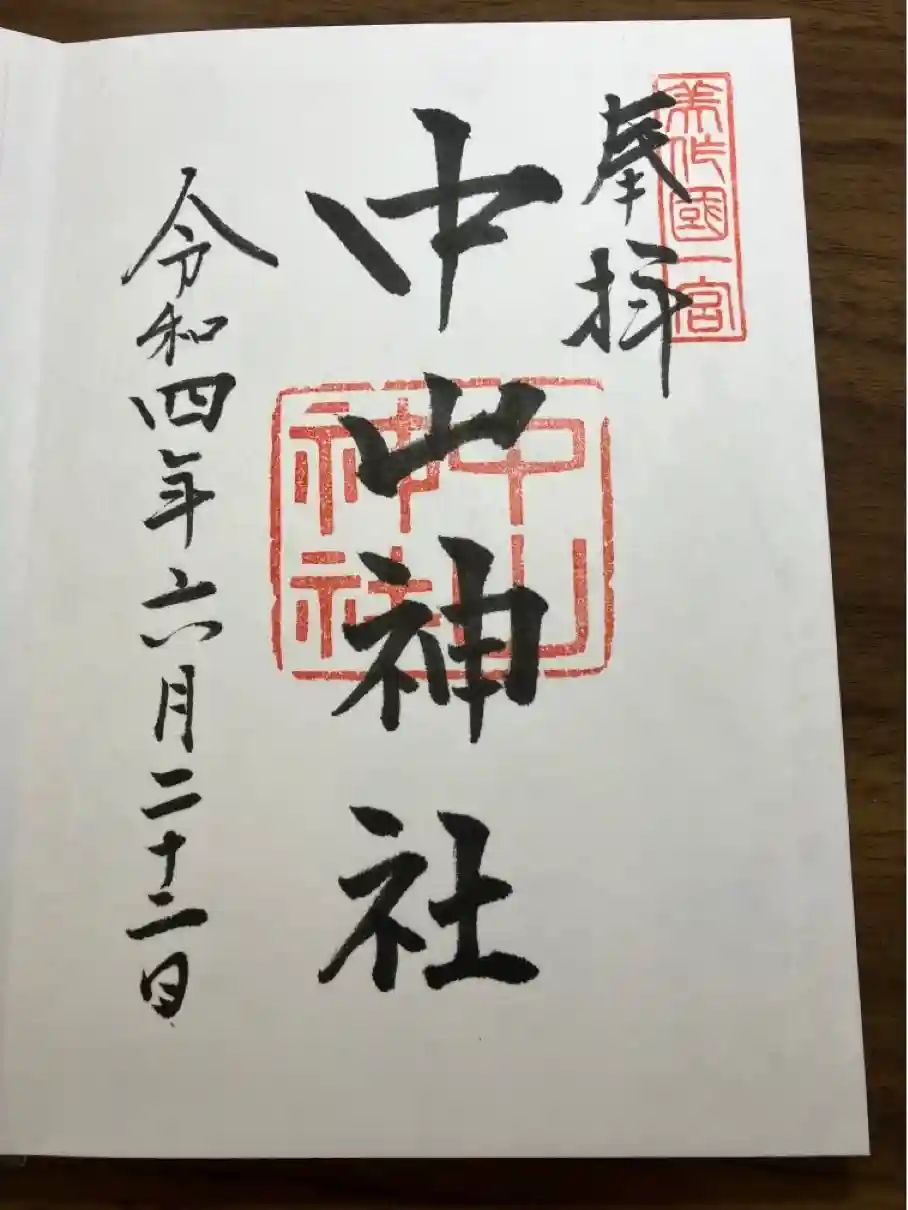 美作國一宮
奉拝
中山神社
中山神社
令和四年六月二十二日